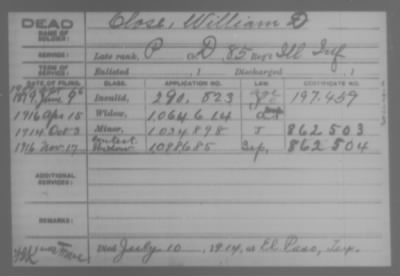 DEAD Close, William D
NAME OF SOLDIER:
SERVICE: Late rank, P Co. D, 85 Reg't Ill Inf
TERM OF SERVICE: Enlisted , 1 Discharged , 1
DATE OF FILING. CLASS. APPLICATION NO. LAW. CERTIFICATE NO.
1879 June 9 Invalid, 290,823 197.459
1916 Apr 15 Widow, 1064614
1914 Oct 3 Minor, 1034898 J 862503
1916 Nov 17 Contest. Widow 1088685 Sep. 862504
ADDITIONAL SERVICES:
REMARKS:
Died July 10, 1914, at El Paso, Tex.